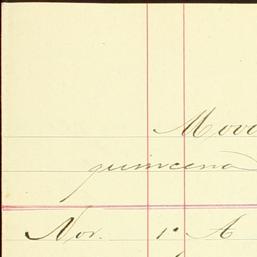 Mov
quincena
Nov. 1º A